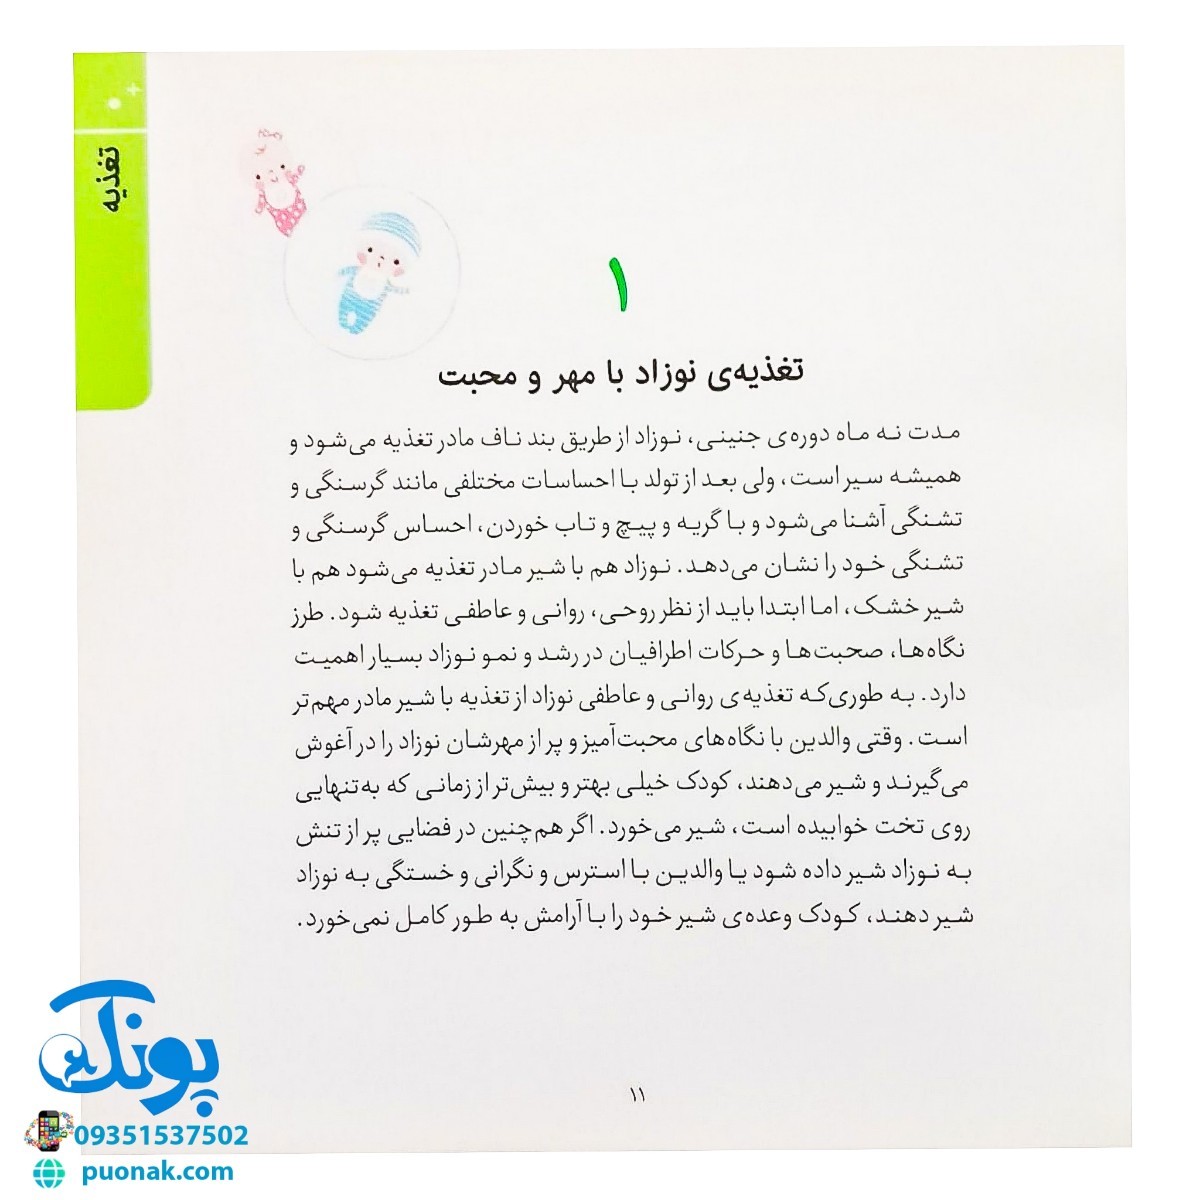 تغذیه
۱
تغذیه‌ی نوزاد با مهر و محبت
مدت نه ماه دوره‌ی جنینی، نوزاد از طریق بند ناف مادر تغذیه می‌شود و
همیشه سیر است، ولی بعد از تولد با احساسات مختلفی مانند گرسنگی و
تشنگی آشنا می‌شود و با گریه و پیچ و تاب خوردن، احساس گرسنگی و
تشنگی خود را نشان می‌دهد. نوزاد هم با شیر مادر تغذیه می‌شود هم با
شیر خشک، اما ابتدا باید از نظر روحی، روانی و عاطفی تغذیه شود. طرز
نگاه‌ها، صحبت‌ها و حرکات اطرافیان در رشد و نمو نوزاد بسیار اهمیت
دارد. به طوری‌که تغذیه‌ی روانی و عاطفی نوزاد از تغذیه با شیر مادر مهم‌تر
است. وقتی والدین با نگاه‌های محبت‌آمیز و پر از مهرشان نوزاد را در آغوش
می‌گیرند و شیر می‌دهند، کودک خیلی بهتر و بیش‌تر از زمانی که به‌تنهایی
روی تخت خوابیده است، شیر می‌خورد. اگر هم‌چنین در فضایی پر از تنش
به نوزاد شیر داده شود یا والدین با استرس و نگرانی و خستگی به نوزاد
شیر دهند، کودک وعده‌ی شیر خود را با آرامش به طور کامل نمی‌خورد.
۱۱
پونک
09351537502
puonak.com